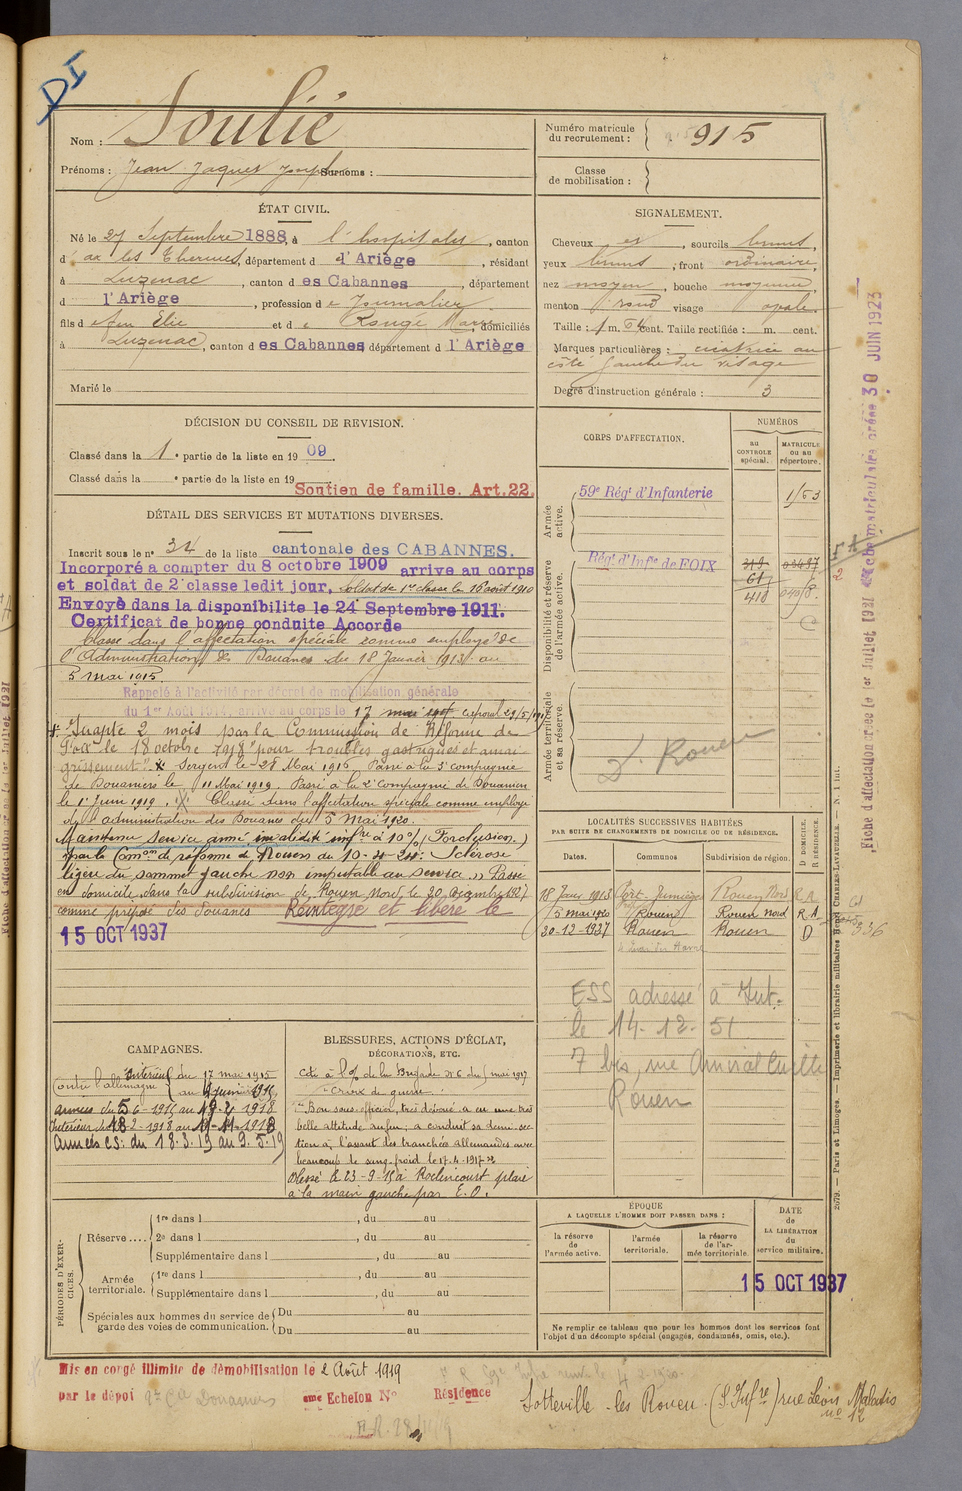 DI
Nom : Soulié
Prénoms : Jean Jaques Joseph Surnoms :
Numéro matricule du recrutement : 915
Classe de mobilisation :
ÉTAT CIVIL.
Né le 27 Septembre 1888, à l'hospitalet, canton
d' ax les Thermes, département d d'Ariège, résidant
à Luzenac, canton d es Cabannes, département
d l'Ariège, profession d e Journalier
fils d e feu Elie et d e Rougé Marie, domiciliés
à Luzenac, canton d es Cabannes, département d l'Ariège
Marié le
SIGNALEMENT.
Cheveux et, sourcils bruns,
yeux bruns, front ordinaire,
nez moyen, bouche moyenne,
menton rond visage ovale.
Taille : 1 m. 64 cent. Taille rectifiée : m. cent.
Marques particulières : cicatrice au
côté gauche du visage
Degré d'instruction générale : 3
DÉCISION DU CONSEIL DE REVISION.
Classé dans la 1e partie de la liste en 19 09
Classé dans la e partie de la liste en 19
Soutien de famille. Art. 22.
DÉTAIL DES SERVICES ET MUTATIONS DIVERSES.
Inscrit sous le n° 34 de la liste cantonale des CABANNES.
Incorporé a compter du 8 octobre 1909 arrive au corps
et soldat de 2e classe ledit jour, soldat de 1ere classe le 16 août 1910
Envoyé dans la disponibilite le 24 Septembre 1911.
Certificat de bonne conduite Accorde
Classé dans l'affectation spéciale comme employé de
l'Administration des Douanes du 18 Janvier 1913 au
5 mai 1915.
Rappelé à l'activité par décret de mobilisation générale
du 1er Août 1914, arrivé au corps le 17 mai 1915. caporal 29/5/191
Inapte 2 mois par la Commission de Réforme de
le 18 octobre 1918 "pour troubles gastriques et amai-
grissement". Sergent le 28 Mai 1916 Passé à la 3e compagnie
de Douaniers le 11 Mai 1919. Passé à la 2e Compagnie de Douaniers
le 1er Juin 1919. Classé dans l'affectation spéciale comme employé
de l'administration des Douanes du 5 Mai 1920.
Maintenu service armé invalidité infre à 10% (Forclusion.)
par la Comon de réforme de Rouen du 10-4-24: Sclérose
légère du sommet gauche non imputable au service. Passé
en domicile dans la subdivision de Rouen Nord le 20 décembre 1927
comme préposé des douanes Réintégré et libéré le
15 OCT 1937
CORPS D'AFFECTATION.
NUMÉROS
au CONTROLE spécial.
MATRICULE ou au répertoire.
Armée active.
59e Régt d'Infanterie 1/53
Disponibilité et réserve de l'armée active.
Régt d'Infie de FOIX
Armée territoriale et sa réserve.
D. Rouen
LOCALITÉS SUCCESSIVES HABITÉES
PAR SUITE DE CHANGEMENTS DE DOMICILE OU DE RÉSIDENCE.
Dates. Communes Subdivision de région. D DOMICILE. R RÉSIDENCE.
18 Janv 1913 Port Jumièges Rouen Nord R A
5 mai 1920 Rouen Rouen Nord R. A
20-12-1927 Rouen Rouen D
ESS adressé à Int.
le 14-12-51
7 bis, rue Amiral Cécille
Rouen
CAMPAGNES.
Contre l'allemagne
Intérieur du 17 mai 1915
au 4 juin 1915
armées du 5-6-1915 au 17-2-1918
Intérieur du 18-2-1918 au 11-11-1918
Armées CS: du 18.3.19 au 9.5.19
BLESSURES, ACTIONS D'ÉCLAT, DÉCORATIONS, ETC.
Cité à l'O/ de la Brigade N° 6 du mai 1917
Croix de guerre
"Bon sous officier, très dévoué a eu une très
belle attitude au feu; a conduit sa demi-sec-
tion à l'assaut des tranchées allemandes avec
beaucoup de sang-froid le 17-4-1917"
Blessé le 23-9-15 à Roclincourt plaie
à la main gauche par E. O.
PÉRIODES D'EXERCICES.
Réserve....
1re dans l , du au
2e dans l , du au
Supplémentaire dans l , du au
Armée territoriale.
1re dans l , du au
Supplémentaire dans l , du au
Spéciales aux hommes du service de garde des voies de communication.
Du au
Du au
ÉPOQUE
A LAQUELLE L'HOMME DOIT PASSER DANS :
la réserve de l'armée active.
l'armée territoriale.
la réserve de l'armée territoriale.
DATE de LA LIBÉRATION du service militaire.
15 OCT 1937
Ne remplir ce tableau que pour les hommes dont les services font
l'objet d'un décompte spécial (engagés, condamnés, omis, etc.).
Mis en congé illimité de démobilisation le 2 Août 1919
par le dépôt Cie Douaniers eme Echelon N° Résidence
Sotteville-les-Rouen. (S. Infre) rue Léon Malandis
n° 12
2079. — Paris et Limoges. — Imprimerie et librairie militaires Henri CHARLES-LAVAUZELLE. — N. 1 int.
Fiche d'affectation créée le 1er Juillet 1921
Fiche matriculaire créée 30 JUIN 1923